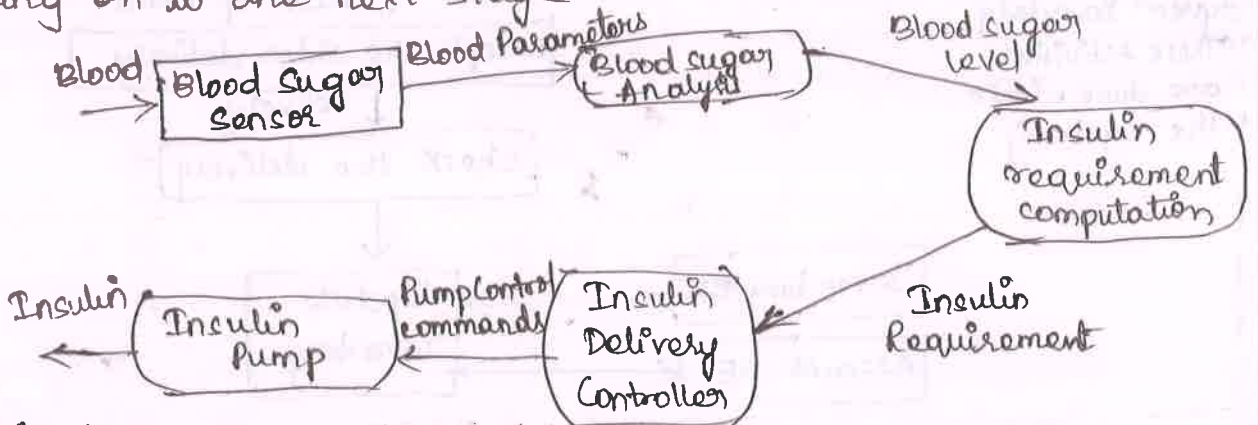 on to the next stage
Blood
Blood Sugar
Sensor
Blood Parameters
Blood sugar
Analysis
Blood sugar
level
Insulin
requirement
computation
Insulin
Requirement
Insulin
Delivery
Controller
Pump Control
commands
Insulin
Pump
Insulin